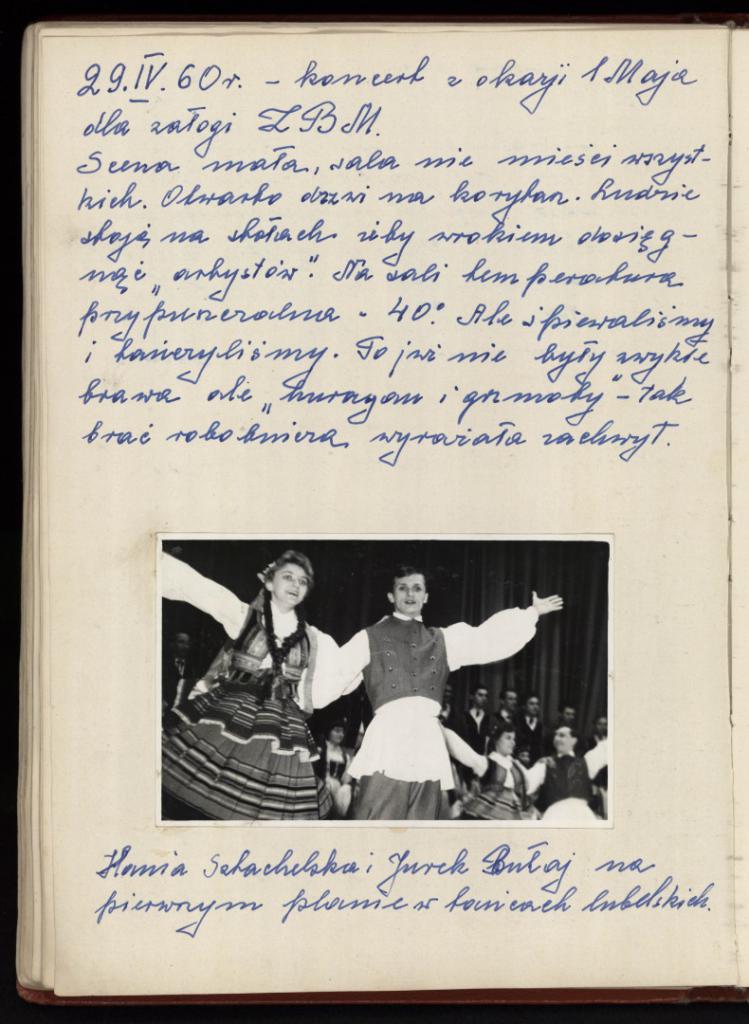 29.IV.60r. - koncert z okazji 1 Maja
dla załogi ZBM.
Scena mała, sala nie mieści wszyst-
kich. Otwarto drzwi na korytarz. Ludzie
stoją na stołach żeby wzrokiem dosięg-
nąć „artystów". Na sali temperatura
przypuszczalna - 40°. Ale śpiewaliśmy
i tańczyliśmy. To już nie były zwykłe
brawa ale „huragan i grzmoty" - tak
brać robotnicza wyrażała zachwyt.
Hania Stachelska i Jurek Bułaj na
pierwszym planie w tańcach lubelskich.